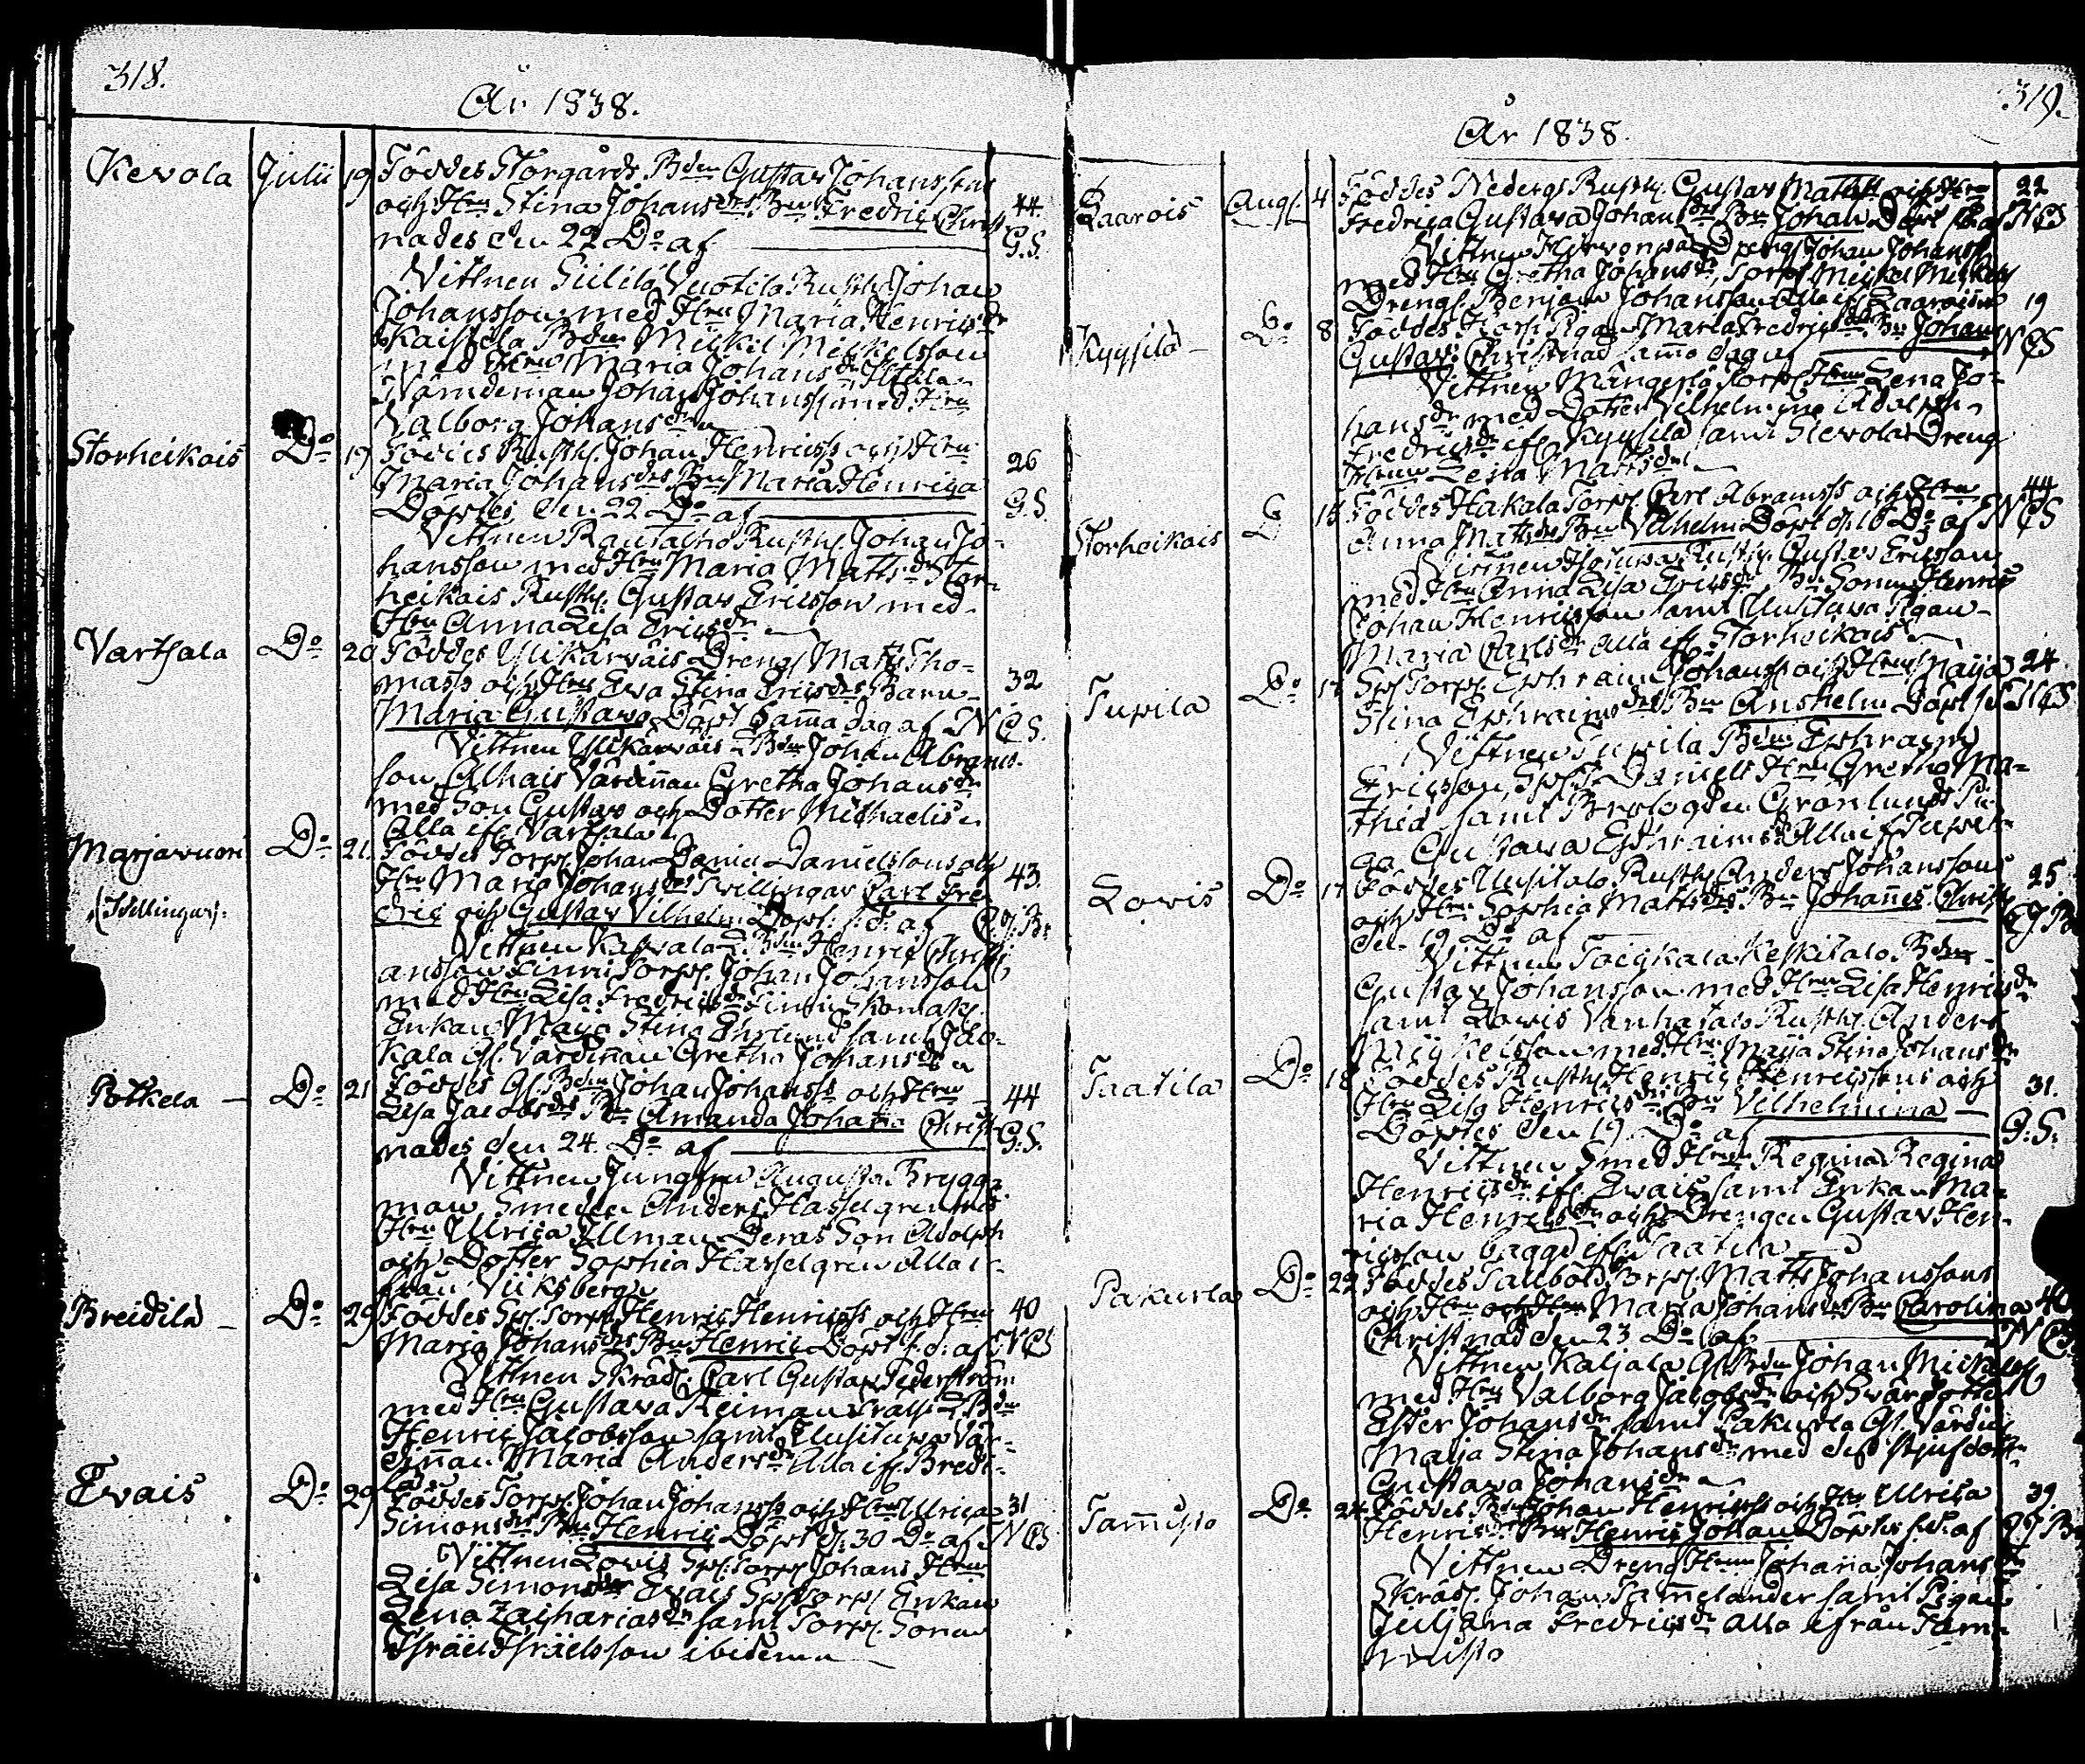 318.
År 1838.
Kevola Julii 19 Föddes Storgårds Bden Gustav Johanssons
och Hru Stina Johansdrs Bn Fredric Christ 44.
nades den 22 Do af G.S.
Vittnen Sililä Vuotila Rusth. Johan
Johansson med Hru Maria Henricsdr
Kaistila Bden Mickel Mickelsson
med Hru Maria Johansdr Uttula
Nämdeman Johan Johanss. med Hru
Valborg Johansdr
Storheikois Do 19 Föddes Rusth. Johan Henricss och Hru
Maria Johansdrs Bn Maria Henrica 26
Döptes den 22 Do af G.S.
Vittnen Rautalho Rusth. Johan Jo-
hansson med Hru Maria Mattsdr Stor-
heikois Rusth. Gustav Ericsson med
Hru Anna Lisa Ericsdr
Vartsala Do 20 Föddes Ylikarvais Drengs Matts Tho-
mass och Hru Eva Stina Ericsdrs Barn 32
Maria Gustava Döpt samma dag af N C S.
Vittnen Ylikarvais Bden Johan Abrams-
son Alhais Värdinnan Gretha Johansdr
med Son Gustav och Dotter Michaelis
Alla ifr. Vartsala
Marjavuori Do 21. Föddes Torp. Johan Daniel Danielssons och
(Tvillingar). Hru Maria Johansdrs Tvillingar Carl Fre- 43.
dric och Gustav Vilhelm Döpt. s. d. af C.J.B.
Vittnen Karvala Bden Henric Christi-
ansson Finni Torp. Johan Johansson
med Hru Lisa Fredricsdr Finni Skomak.
Enkan Maja Stina Ehrlund samt Jao-
kala Gl. Värdinnan Gretha Johansdr
Potkela Do 21 Föddes Gl. Bden Johan Johanss och Hru
Lisa Jacobsdrs Bn Amanda Johana Christ 44
nades den 24. Do af G.S.
Vittnen Jungfru Augusta Brygg-
man, Smeden Anders Hasselgren med
Hru Ulrica Illman Deras Son Adolph
och Dotter Sophia Hasselgren Alla i-
från Viiksberg
Breidilä Do 29 Föddes Spl. Torp. Henric Henricss och Hru 40
Maria Johansdrs Bn Henric Döpt s. d. af N C S
Vittnen Skräd. Carl Gustav Federström
med Hru Gustava Reiman Bden
Henric Jacobsson samt Uusitupa Vär-
dinnan Maria Andersdr Alla ifr. Breidi-
lä
Evais Do 29 Föddes Torp. Johan Johanss och Hru Ulrica 31
Simonsdrs Bn Henric Döpt d. 30 Do af N C S
Vittnen Lovis Spl. Torp. Johans Hru
Lisa Simonsdr Evais Spl Torp. Enkan
Lena Zachariasdr samt Torp. Sonen
Israel Israelsson ibidem
319.
År 1838.
Laarois Aug. 4 Föddes Nedergs Rusth. Gustav Mattss. och Hru 22
Fredrica Gustava Johansdrs Bn Johan Döpt s. d. af N C S
Vittnen Drengs Johan Johanss
med Hru Gretha Johansdr, Torp. Mickel Mickels.
Drengs. Benjam Johansson Alla ifr. Laarois
Kyysilä Do 8 Föddes Torp. Pigan Maria Fredricsdrs Bn Johan 19
Gustav. Christnad samma dag af N C S
Vittnen Mångerlä Torp. Hru Lena Jo-
hansdr med Dotter Vilhelmina Adolph
Fredricsdr ifr. Kyysilä samt Kevola Dreng
Hrun Lena Mattsdr
Storheikois D 15 Föddes Hakala Torp. Carl Abramss och Hru 44
Anna Mattsdrs Bn Vilhelm Döpt d. 16 Do af N C S
Vittnen Rusth. Gustav Ericsson
med Hru Anna Lisa Ericsdr, Bd. Sonen Henric
Johan Henricsson samt Uusitupa Pigan
Maria Carlsdr alla ifr. Storheikois
Tupila Do 17 Spl Torp. Ephraim Johanss och Hru Maija 24.
Stina Ephraimsdrs Bn Anshelm Döpt s. d. N C S
Vittnen Tupila Bden Ephraim
Ericsson, Spl Daniels Hru Gretha Ma-
thia samt Grönlunds Pi-
ga Gustava Ephraimsdr Alla if Tupila
Lovis Do 17 Föddes Uusitalo Rusth. Anders Johanssons 25.
och Hru Sophia Mattsdrs Bn Johannes Christn.
den 19 Do af C J B
Vittnen Toijkala Keskitalo Bden
Gustav Johansson med Hru Lisa Henricsdr
samt Lovis Vanhatalo Rusth. Anders
Mickelsson med Hru Maija Stina Johansdr
Taatila Do 18 Föddes Rusth. Henric Henricssons och 31.
Hru Lisa Henricsdrs Bn Vilhelmina
Döptes den 19. Do af G.S.
Vittnen Smed Hrun Regina Regina
Henricsdr ifr. Evais samt Enkan Ma-
ria Henricsdr och Drengen Gustav Hen-
ricsson bägge ifr. Taatila
Pakurla Do 22 Föddes Torp. Matts Johanssons
och Hru och Hru Maria Johansdrs Bn Carolina 40
Christnad den 23 Do af N C S
Vittnen Kaljala Gl. Bden Johan Mickelss
med Hru Valborg Jacobsdr och Svärdotter
Ester Johansdr samt Pakurla Gl. Värdin
Maja Stina Johansdr med dess Styfdotter
Gustava Johansdr
Tammisto Do 24. Föddes Bden Johan Henricss och Hru Ulrica 39
Henricsdrs Bn Henric Johan Döptes s. d. af C J B
Vittnen Dreng Hrun Johanna Johansdr
Skräd. Johan Tammelander samt Pigan
Juliana Fredricsdr alla ifrån Tam-
misto